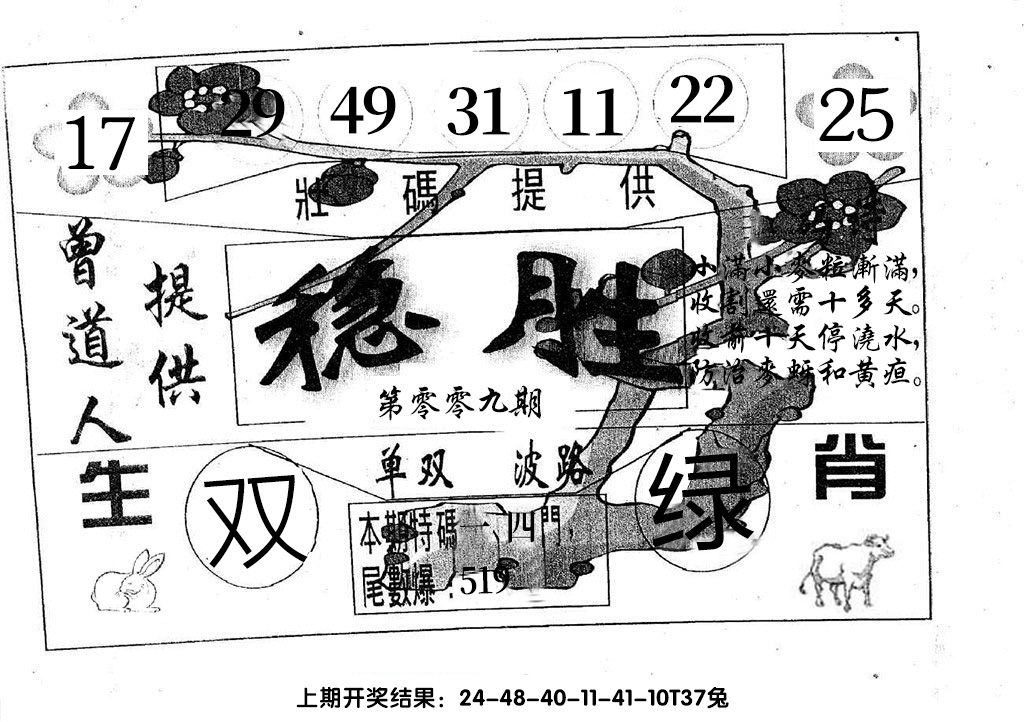 17 29 49 31 11 22 25
壯碼提供
曾道人
提供
稳胜
第零零九期
特
小滿小麥粒漸滿，
收割還需十多天。
收前十天停澆水，
防治麥蚜和黃疸。
单双 波路
生 双 绿 肖
本期特碼一、四門，
尾數爆：519
上期开奖结果：24-48-40-11-41-10T37兔